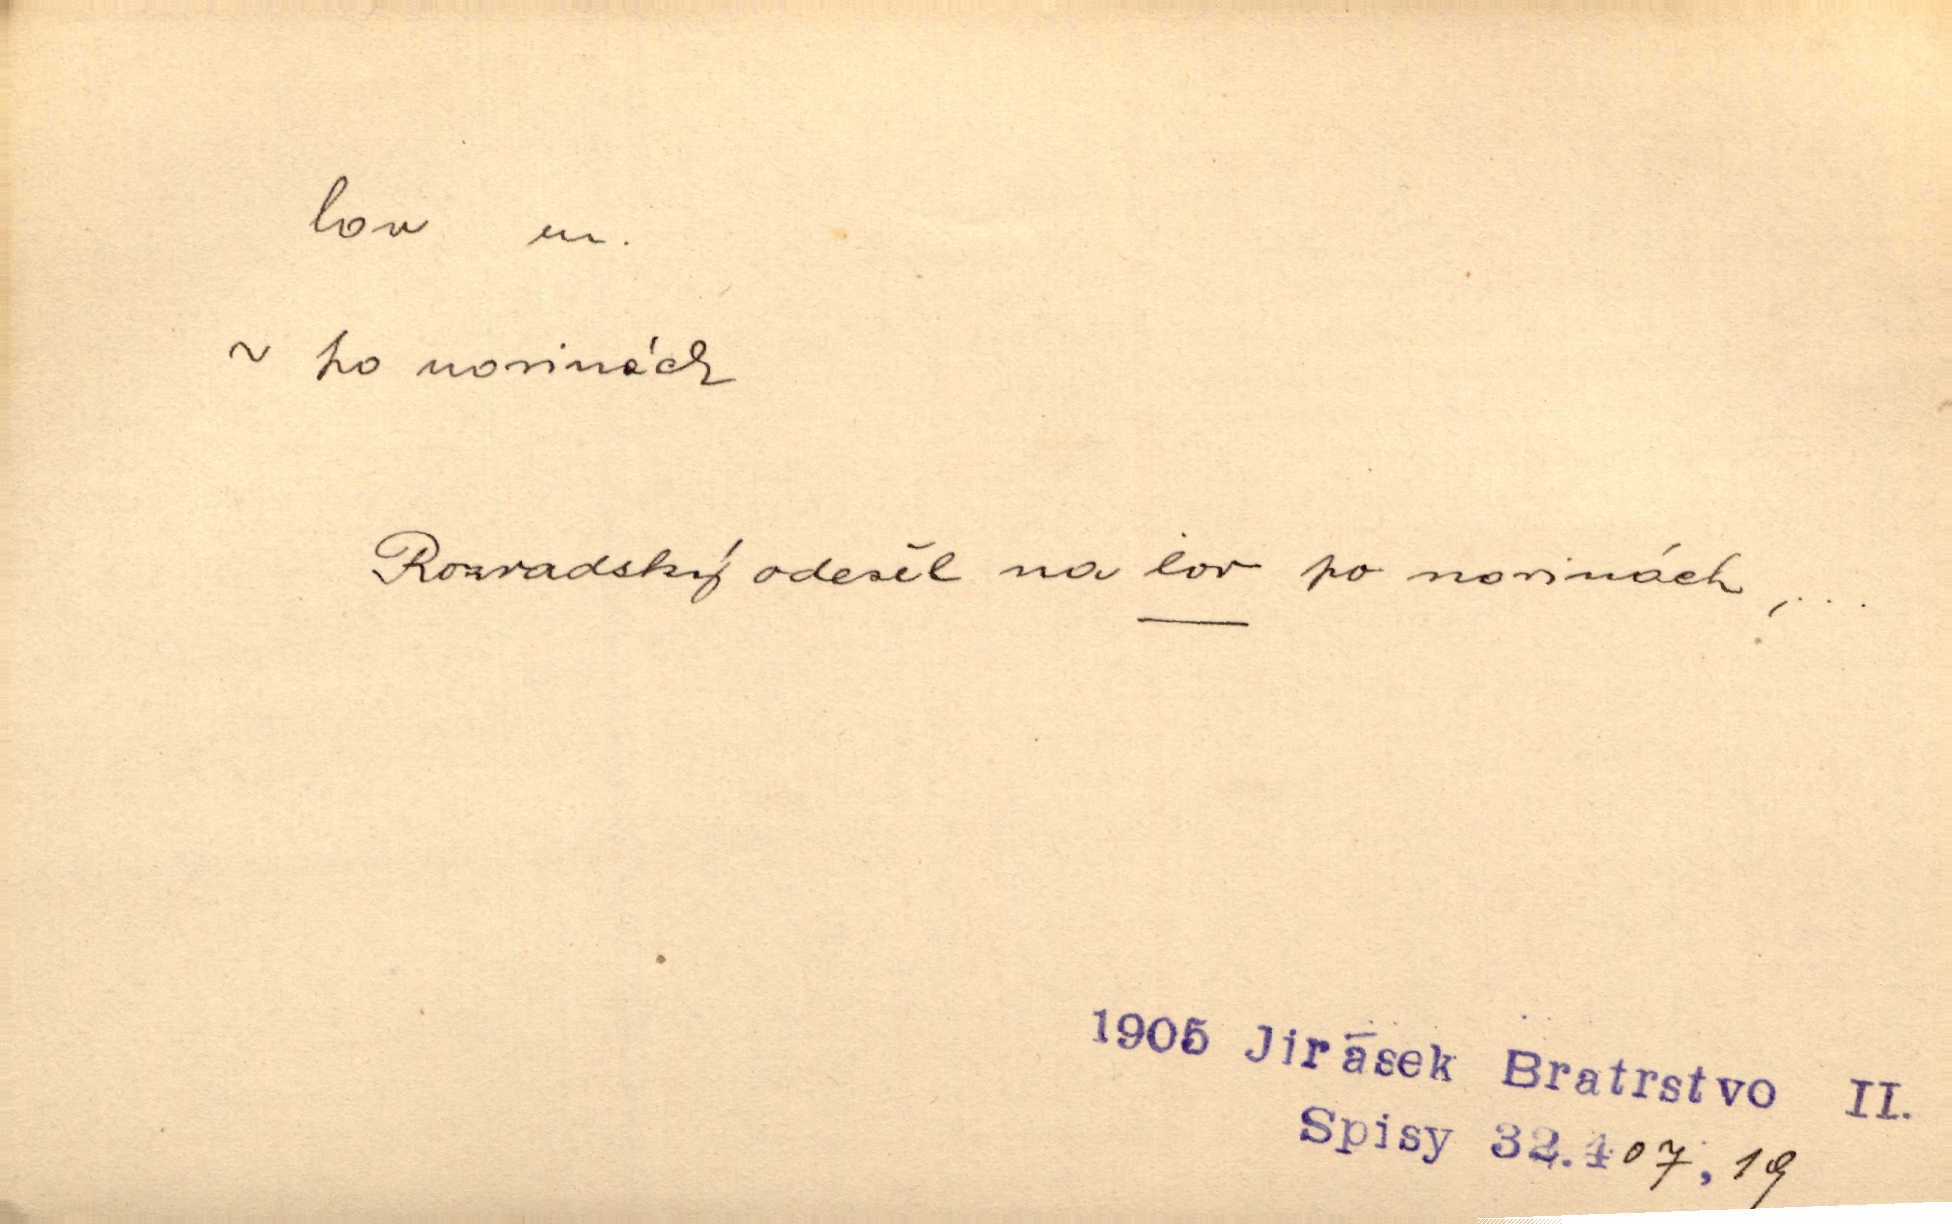 lov m.
~ po novinách
Rozvadský odešel na lov po novinách,...
1905 Jirásek Bratrstvo II.
Spisy 32.407,19